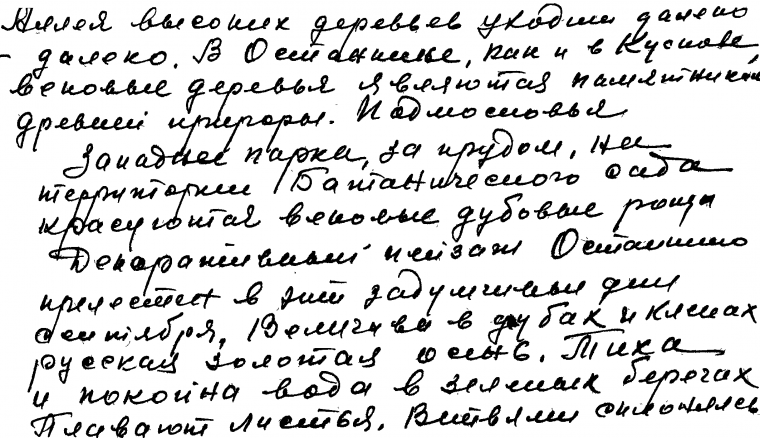 Аллея высоких деревьев уходит далеко
- далеко. В Останкине, как и в Кускове,
вековые деревья являются памятником
древней природы. Подмосковья
Западнее парка, за прудом, на
территории Ботанического сада
красуются вековые дубовые рощи
Декоративный пейзаж Останкино
прелестен в эти задумчивые дни
сентября. Величава в дубах и кленах
русская золотая осень. Тиха
и покойна вода в зеленых берегах
Плавают листья. Ветвями склонялись